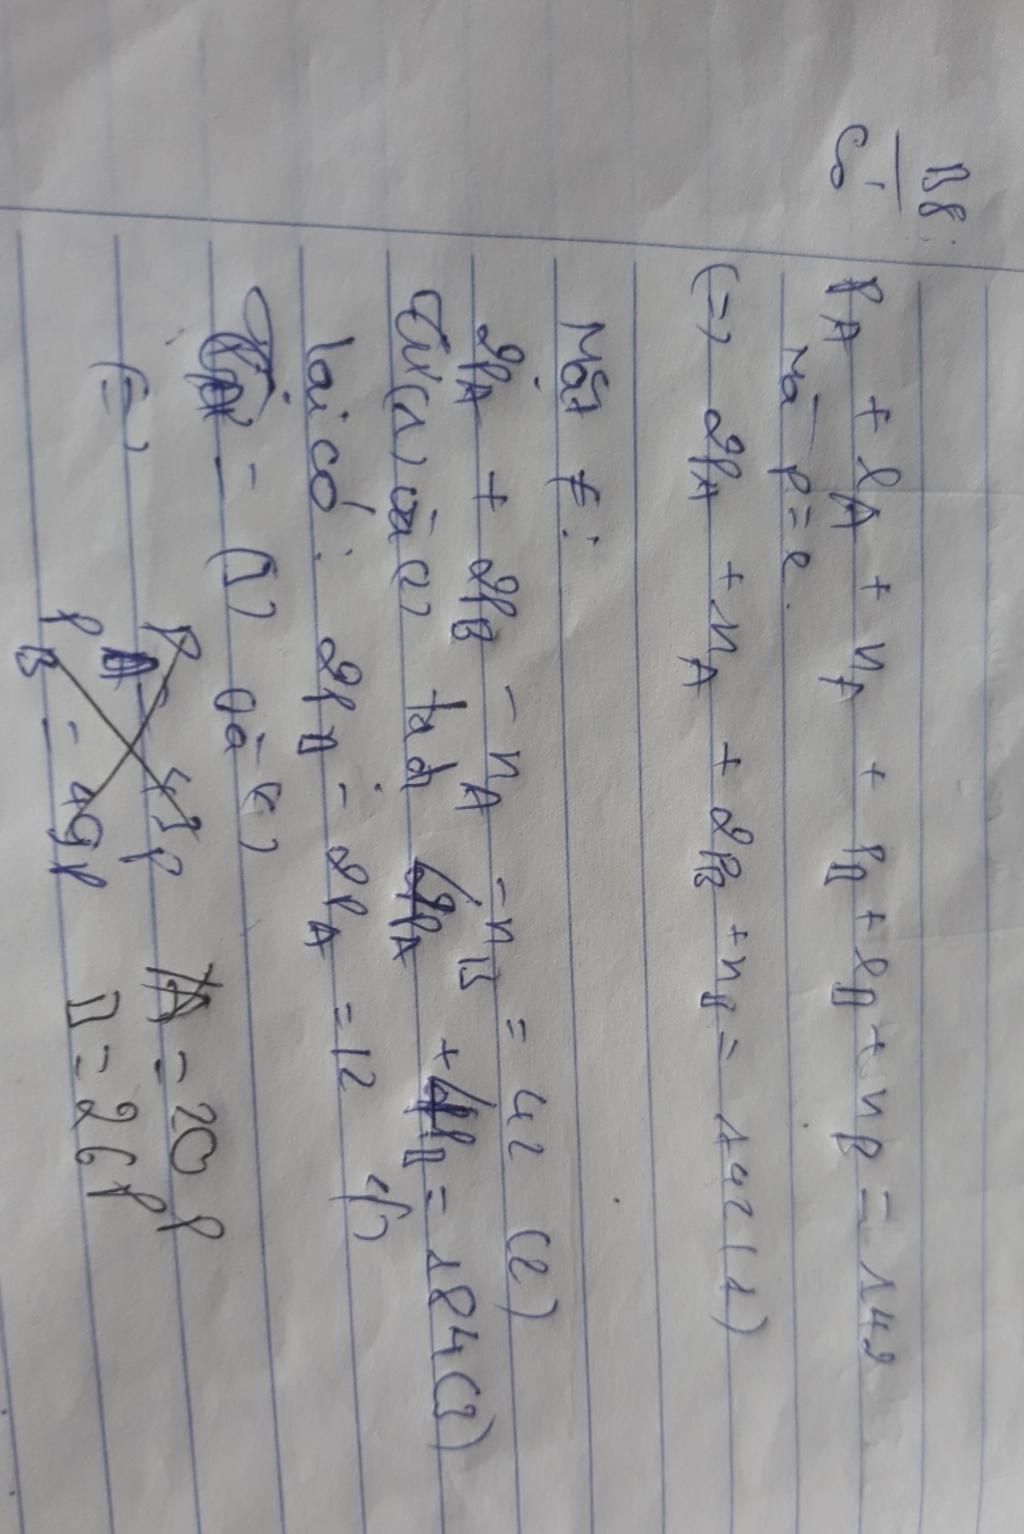 B8:
Có
PA + eA + nA + PB + eB + nB = 142
Mà p = e.
(=) 2PA + nA + 2PB + nB = 142 (1)
Mặt ≠:
2PA + 2PB - nA - nB = 42 (2)
Từ (1) và (2) 4PA + 4PB = 184 (3)
lại có: 2PB - 2PA = 12
(=)
PB = 49P
A = 20 P
B = 26 P